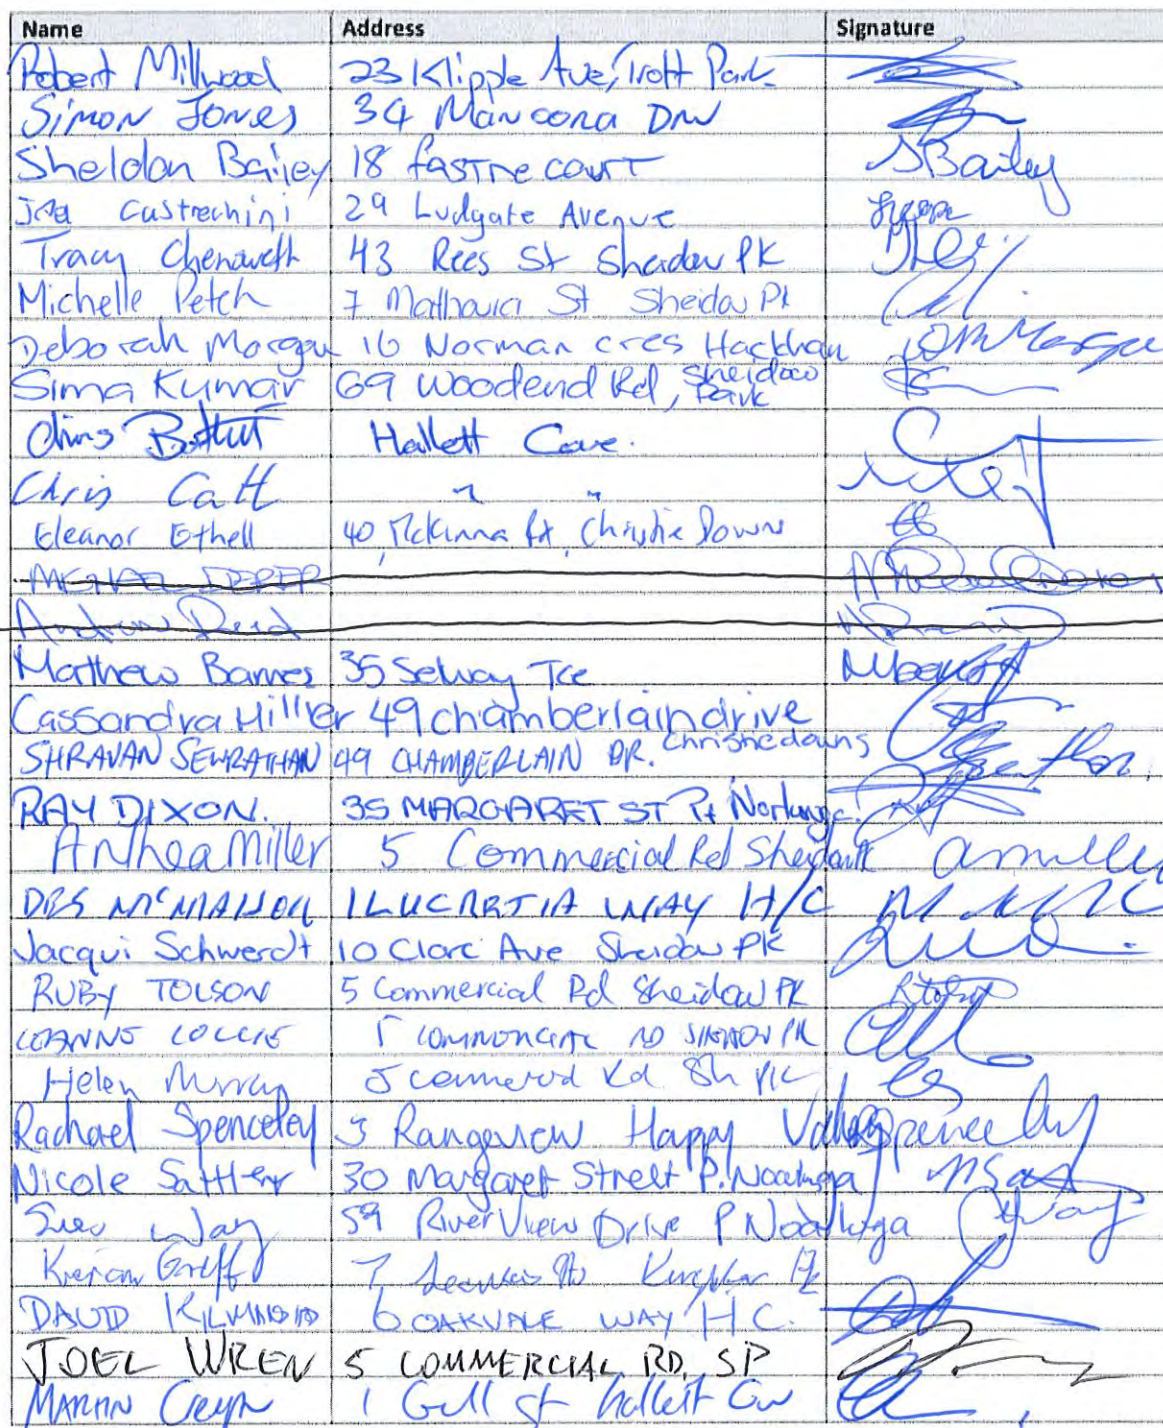 Name Address Signature
Robert Millwood 23 Klipple Ave, Trott Park
Simon Jones 34 Manoora Drv
Sheldon Bailey 18 fastne court SBailey
Castrechini 29 Ludgate Avenue
Tracy Chenoweth 43 Rees St Sheidow PK
Michelle Petch 7 St Sheidow Pk
Deborah Morgan 16 Norman cres Hackham DMMorgan
Sima Kumar 69 Woodend Rd, Sheidow Park
Chris Hallett Cove.
Chris Catt " "
Eleanor Ethell 40, McKinna Rd, Christie Downs EE
MICHAEL
Andrew Reed
Matthew Barnes 35 Selway Tce
Cassandra Hillier 49 chamberlain drive
SHRAVAN SEWRATHAN 49 CHAMBERLAIN DR. Christiedowns
RAY DIXON. 35 MARGARET ST Pt Norlunga.
Anthea Miller 5 Commercial Rd Sheidow amiller
DES McMAHON 1 LUCRETIA WAY H/C
Jacqui Schwerdt 10 Clare Ave Sheidow PK
RUBY TOLSON 5 Commercial Rd Sheidow PK
5 RD SHEIDOW PK
Helen Murray 5 Rd Sh PK
Rachael Spenceley 3 Rangeview Happy Valley Spenceley
Nicole Sattler 30 Margaret Street P. Noarlunga NSatt
Sue Way 59 River View Drive P Noarlunga Way
Kieran 7
DAVID 6 OAKVALE WAY H C.
JOEL WREN 5 COMMERCIAL RD, SP
MARTIN 1 Gull St Hallett Cov